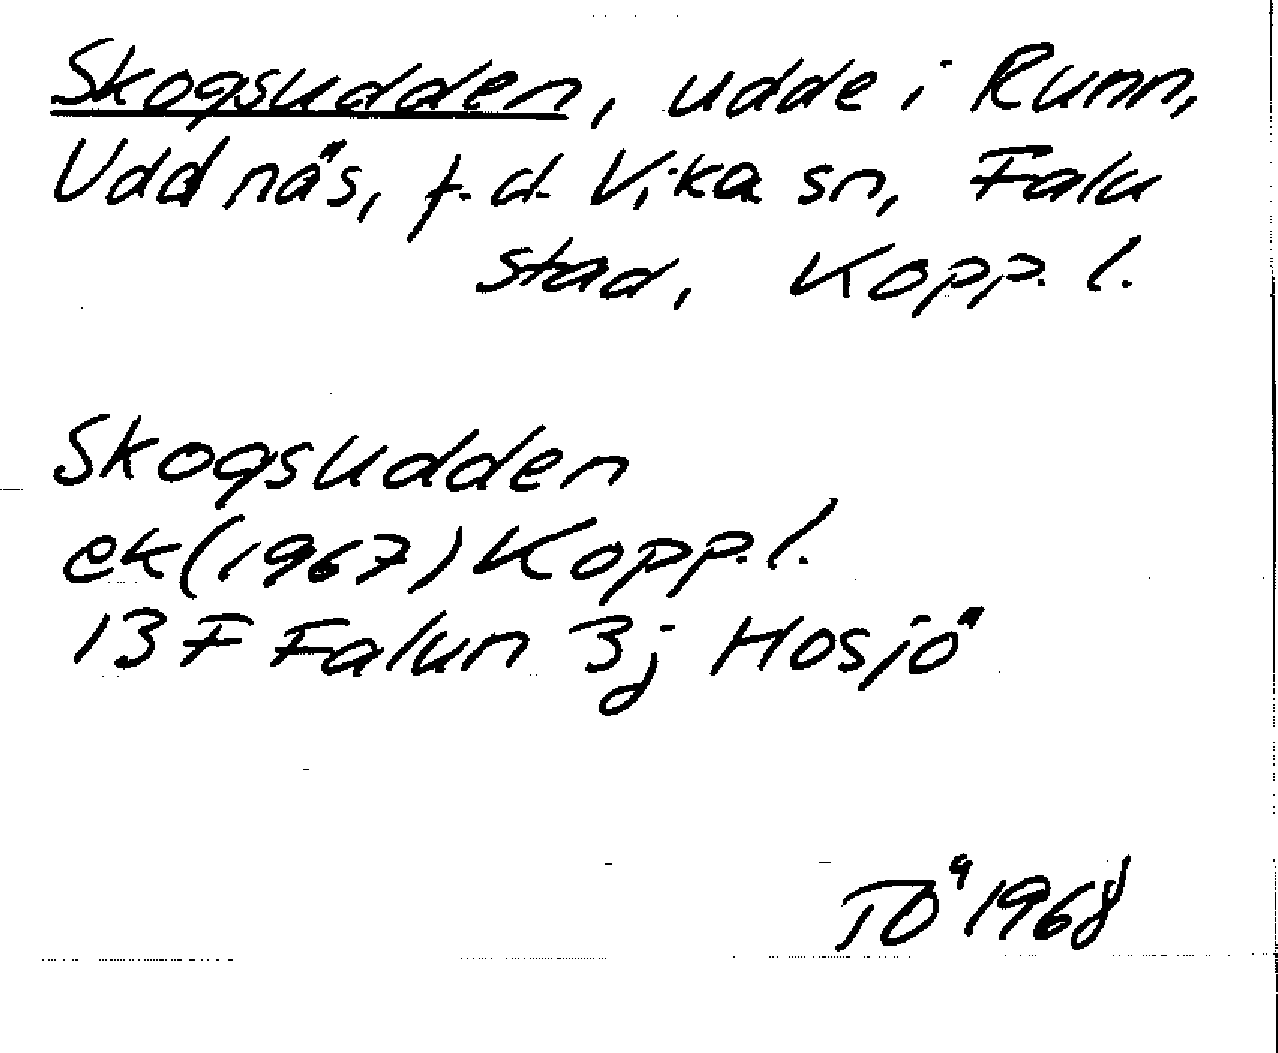 Skogsudden, udde i Runn,
Uddnäs, f.d. Vika sn, Falu
stad, Kopp. l.
Skogsudden
ek(1967) Kopp. l.
13 F Falun 3j Hosjö
TÖ 1968